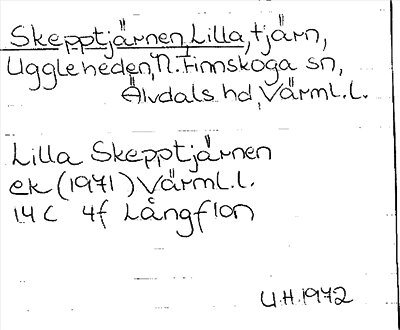 Skepptjärnen, Lilla, tjärn,
Uggleheden, N. Finnskoga sn,
Älvdals hd, Värml.l.
Lilla Skepptjärnen
ek (1971) Värml.l.
14 C 4f Långflon
U.H. 1972